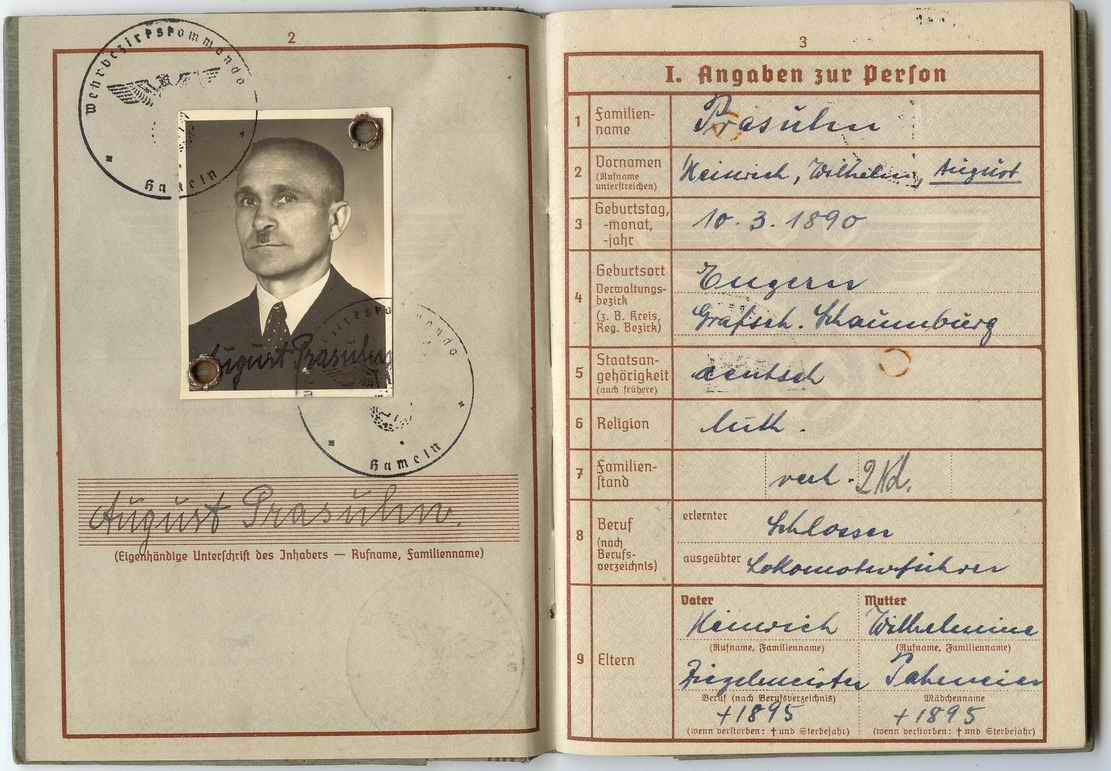 2
Wehrbezirkskommando
Hameln
August Prasuhn
Wehrbezirkskommando
Hameln
August Prasuhn.
(Eigenhändige Unterschrift des Inhabers — Rufname, Familienname)
3
I. Angaben zur Person
1 Familien-
name
Prasuhn
2 Vornamen
(Rufname
unterstreichen)
Heinrich, Wilhelm, August
3 Geburtstag,
-monat,
-jahr
10. 3. 1890
4 Geburtsort
Verwaltungs-
bezirk
(z. B. Kreis,
Reg. Bezirk)
Engern
Grafsch. Schaumburg
5 Staatsan-
gehörigkeit
(auch frühere)
deutsch
6 Religion
luth.
7 Familien-
stand
verh. 2 Kd.
8 Beruf
(nach
Berufs-
verzeichnis)
erlernter Schlosser
ausgeübter Lokomotivführer
9 Eltern
Vater Mutter
Heinrich Wilhelmine
(Rufname, Familienname) (Rufname, Familienname)
Ziegelmeister
Beruf (nach Berufsverzeichnis) Mädchenname
+1895 +1895
(wenn verstorben: † und Sterbejahr) (wenn verstorben: † und Sterbejahr)